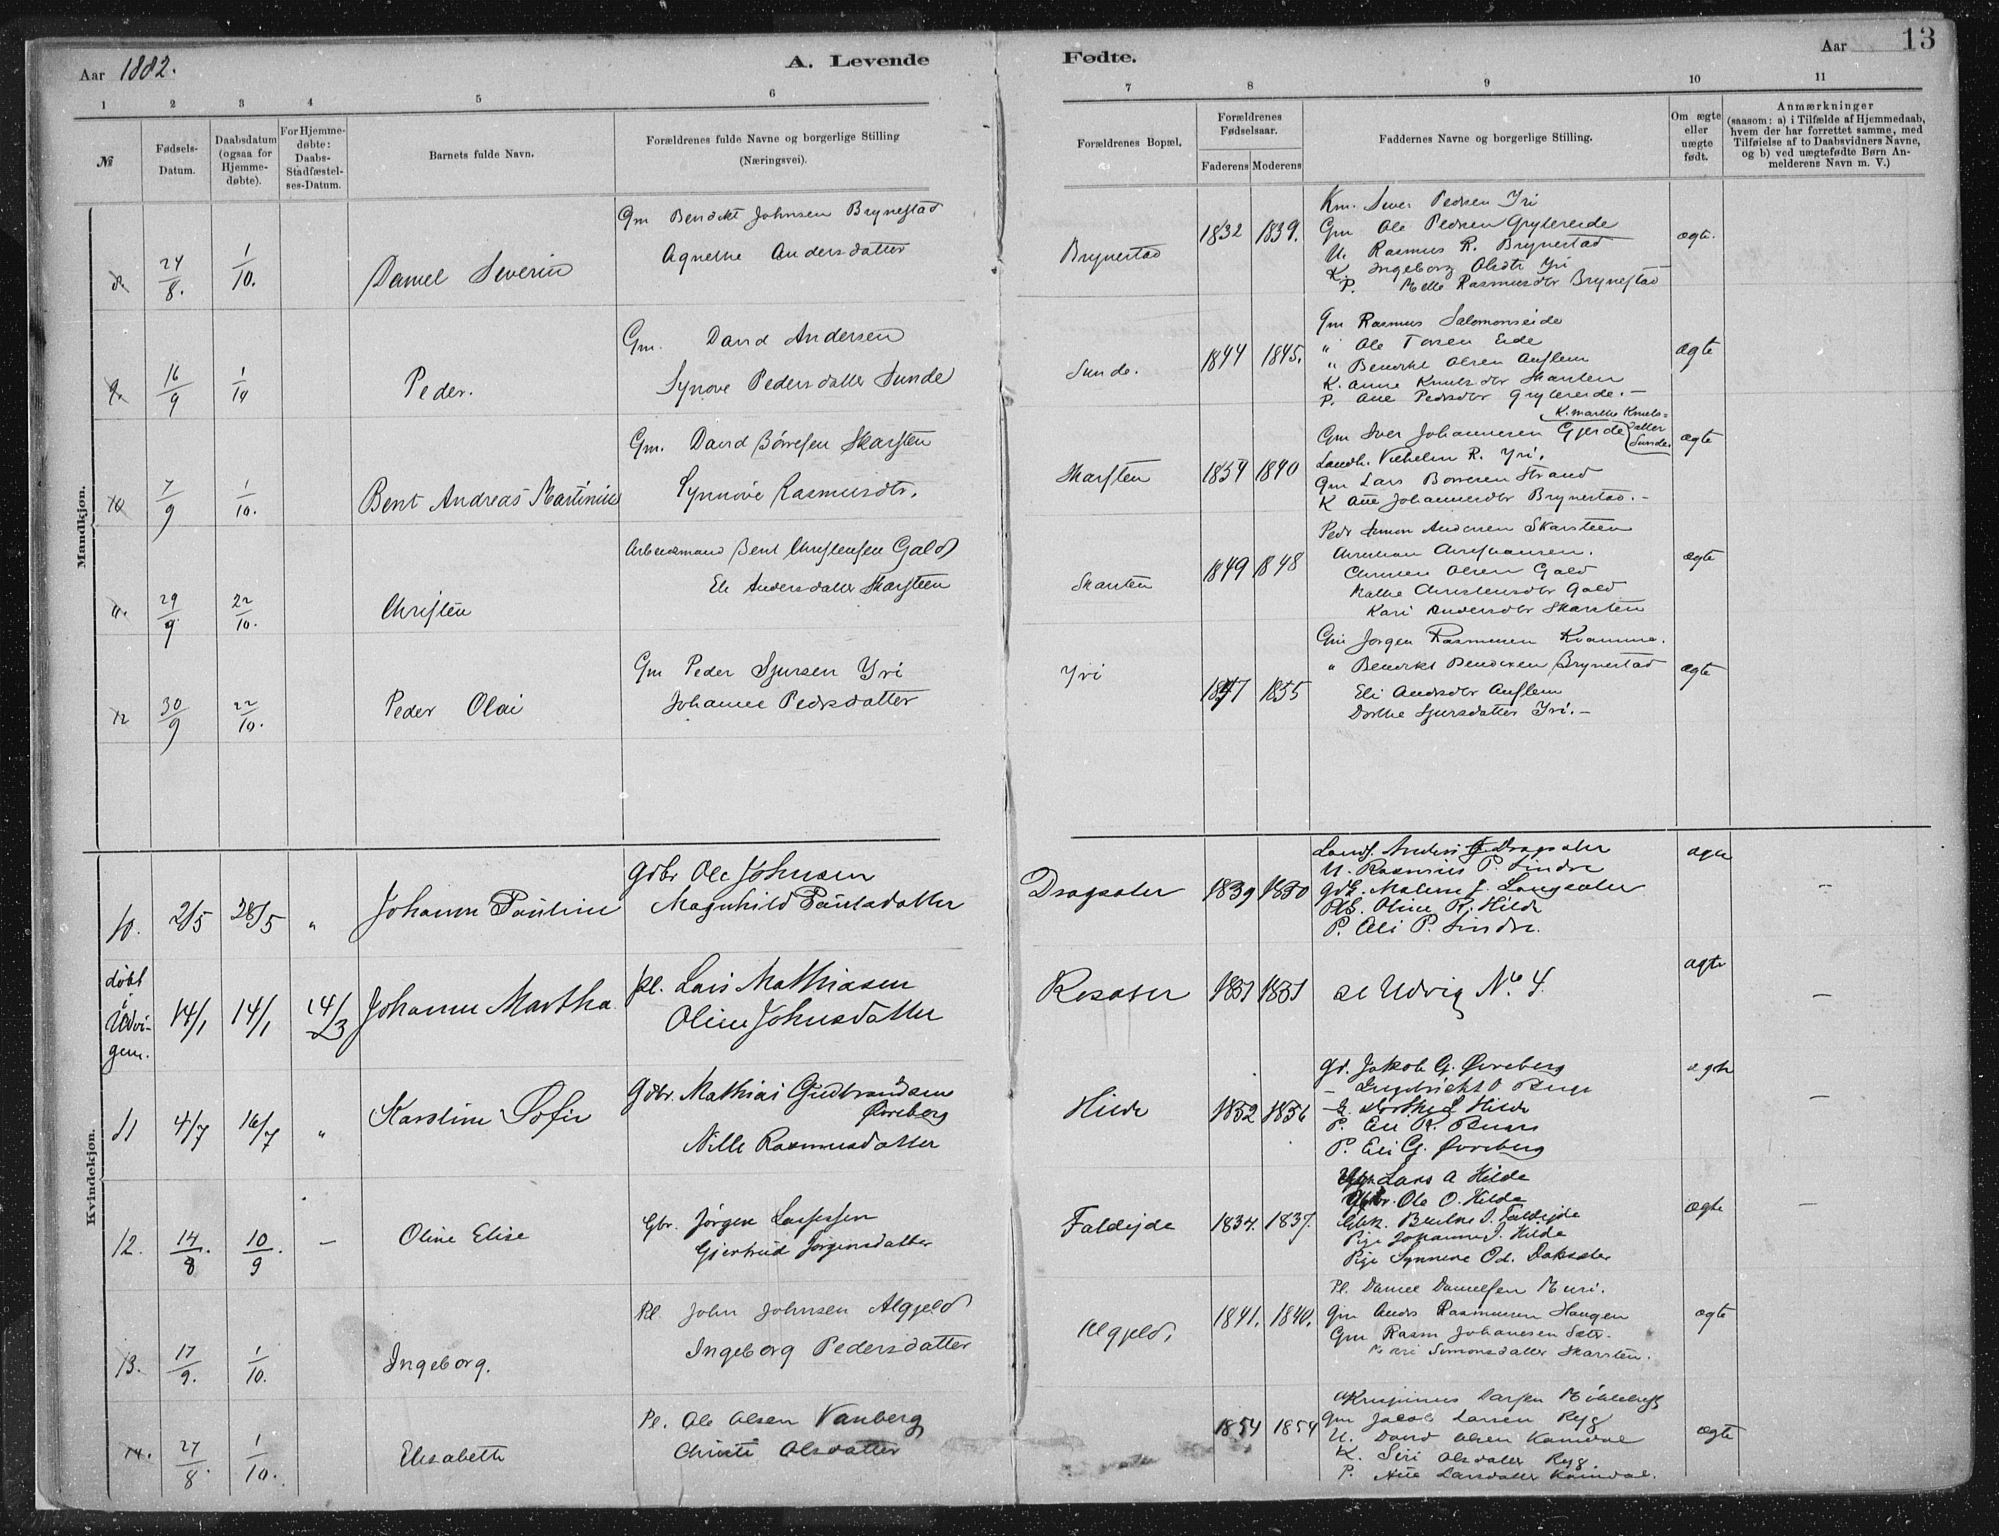 Aar 1882.
A. Levende
Fødte.
Aar
13
1 2 3 4 5 6 7 8 9 10 11
№
Fødsels-
Datum.
Daabsdatum
(ogsaa for
Hjemme-
døbte).
For Hjemme-
døbte:
Daabs-
Stadfæstel-
ses-Datum.
Barnets fulde Navn.
Forældrenes fulde Navne og borgerlige Stilling
(Næringsvei).
Forældrenes Bopæl.
Forældrenes
Fødselsaar.
Faderens
Moderens
Faddernes Navne og borgerlige Stilling.
Om ægte
eller
uægte
født.
Anmærkninger
(saasom: a) i Tilfælde af Hjemmedaab,
hvem der har forrettet samme, med
Tilføielse af to Daabsvidners Navne,
og b) ved uægtefødte Børn An-
melderens Navn m. V.)
Mandkjøn.
8. 24/8. 1/10. Daniel Severin
Gm Bendikt Johnsen Brynestad
Agnethe Andersdatter
Brynestad 1832 1839.
Km. Sever Pedersen Yri
Gm Ole Pedersen Grytereide
U. Rasmus R. Brynestad
K. Ingeborg Olsdtr Yri
P. Mette Rasmusdtr Brynestad
ægte.
9. 16/9 1/10 Peder.
Gm. David Andersen
Synove Pedersdatter Sunde
Sunde. 1844 1845.
Gm Rasmus Salomonseide
" Ole Eide
" Bendikt Olsen Auflem
K. Anne Knutsdtr Skarsten
P. Ane Pedersdtr Grytereide. –
ægte
10 7/9 1/10. Bent Andreas Martinius
Gm. David Børresen Skarsten
Synnøve Rasmusdtr.
Skarsten 1854 1840
K. Marthe Knuts-
datter
Sunde.
Gm Iver Johannesen Gjerde
Landh. Vilhelm R. Yri.
Gm Lars Børresen Strand
K Ane Johannesdtr Brynestad. –
ægte
11. 29/9 22/10. Christen
Arbeidsmand Bent Christensen Gald
Eli Andersdatter Skarsteen
Skarsten 1849 1848
Pedr Simon Andersen Skarsteen
Christian Christiansen.
Christen Olsen Gald
Malhe Christensdtr Gald
Kari Andersdtr Skarsten
ægte
12 30/9 22/10. Peder Olai
Gm Peder Sjursen Yri
Johanne Pedersdatter
Yri 1847 1855
Gm Jørgen Rasmusen Kvamme.
" Bendikt Bendixen Brynestad
Eli Andersdtr Auflem
Dorthe Sjursdatter Yri. –
ægte
Kvindekjøn.
10. 2/5 28/5 " Johanne Pauline
Gdbr Ole Johnsen
Magnhild Paulsdatter
Dragsæter 1839 1850
Landh. Anders J. Dragsæter
U. Rasmus P. Lindre
Gdk. Malene J. Langsæter
Oline R. Hilde
P. Ali P. Lindre.
ægte –
døbt
i
Udvi-
gen.
14/1 14/1 14/23 Johanne Martha
Pl. Lars Mathiasen
Oline Johnsdatter
Rosæter 1851 1851
se Udvig No 4.
ægte –
11 4/7 16/7 " Karoline Sofie
Gdbr. Mathias Gudbrandsen
Øvreberg
Nille Rasmusdatter
Hilde 1852 1856
Gd. Jakob G. Øvreberg
– Ingebrigt O
K. Dorthe L Hilde
P. Eli R.
P. Eli G. Øvreberg
ægte –
12. 14/8. 10/9. – Oline Elise
Gbr. Jørgen Lassesen
Gjertrud Jørgensdatter
Faldeide 1834. 1837.
Lars A Hilde
Gbr. Ole O. Hilde
Gbk. Berthe J. Faldeide
Pige Johanne J. Hilde
Pige Synneve Od. Daksæter
ægte –
13. 17/9. 1/10. Ingeborg.
Pl. John Johnsen Algjeld
Ingeborg Pedersdatter
Algjeld. 1841. 1840.
Pl. Daniel Danielsen Muri.
Gm Anders Rasmussen Haugen
Gm Rasm Johanesen Sætr.
Kari Simonsdatter Skarsten.
ægte
14. 27/8. 1/10. Elisabeth
Pl. Ole Olsen Vanberg
Christi Olsdatter
1854 1854
Krispinus Larsen Mykleby
Gm Jacob Larsen Ryg
U. David Olsen Kamdal
K. Siri Olsdatter Ryg.
P. Ane Larsdatter Kamdal.
ægte